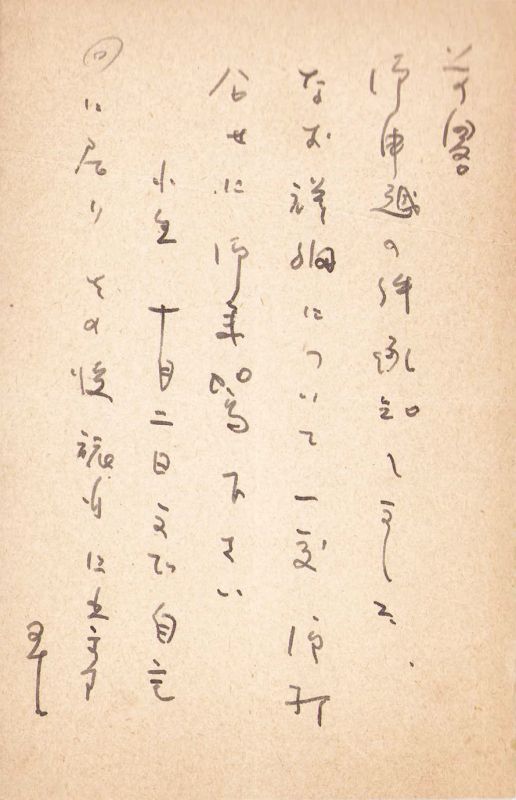 前略
御申越の件承知しました、
なお詳細について一度御打
合せに御来
下さい
小生 十月二日まで自宅
に居り その後旅行に出ます